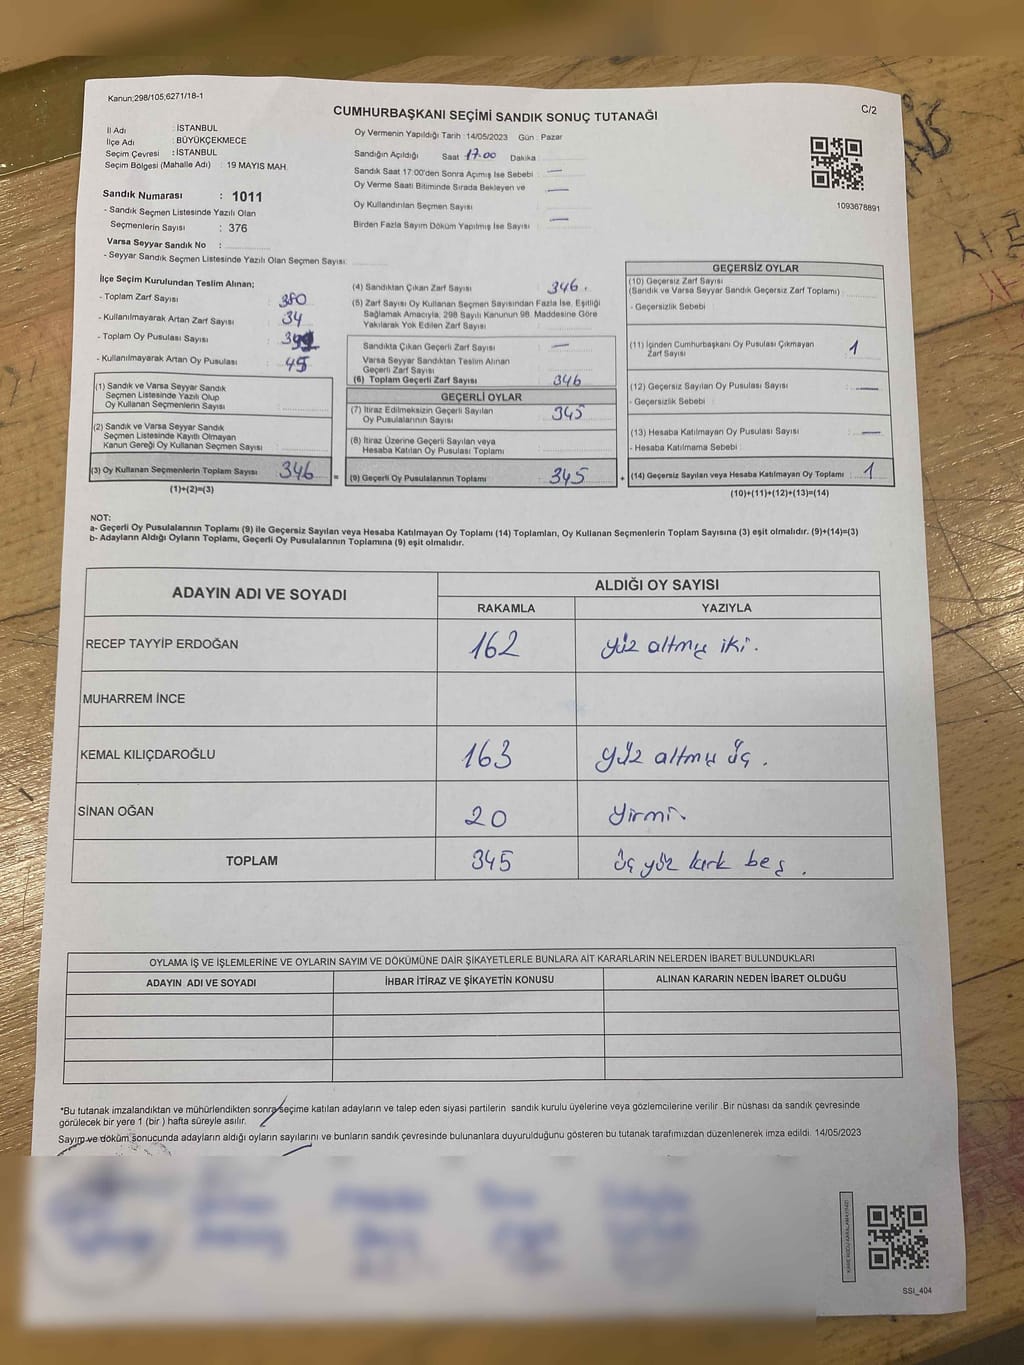 Kanun;298/105;6271/18-1
CUMHURBAŞKANI SEÇİMİ SANDIK SONUÇ TUTANAĞI
C/2
İl Adı : İSTANBUL
İlçe Adı : BÜYÜKÇEKMECE
Seçim Çevresi : İSTANBUL
Seçim Bölgesi (Mahalle Adı) : 19 MAYIS MAH.
Sandık Numarası : 1011
- Sandık Seçmen Listesinde Yazılı Olan
Seçmenlerin Sayısı : 376
Varsa Seyyar Sandık No :
- Seyyar Sandık Seçmen Listesinde Yazılı Olan Seçmen Sayısı:
Oy Vermenin Yapıldığı Tarih :14/05/2023 Gün : Pazar
Sandığın Açıldığı Saat 17.00 Dakika
Sandık Saat 17:00'den Sonra Açımış İse Sebebi : —
Oy Verme Saati Bitiminde Sırada Bekleyen ve —
Oy Kullandırılan Seçmen Sayısı
Birden Fazla Sayım Döküm Yapılmış İse Sayısı : —
1093678891
İlçe Seçim Kurulundan Teslim Alınan;
- Toplam Zarf Sayısı : 380
- Kullanılmayarak Artan Zarf Sayısı : 34
- Toplam Oy Pusulası Sayısı :
- Kullanılmayarak Artan Oy Pusulası : 45
(1) Sandık ve Varsa Seyyar Sandık
Seçmen Listesinde Yazılı Olup
Oy Kullanan Seçmenlerin Sayısı :
(2) Sandık ve Varsa Seyyar Sandık
Seçmen Listesinde Kayıtlı Olmayan
Kanun Gereği Oy Kullanan Seçmen Sayısı :
(3) Oy Kullanan Seçmenlerin Toplam Sayısı : 346
(1)+(2)=(3)
(4) Sandıktan Çıkan Zarf Sayısı : 346.
(5) Zarf Sayısı Oy Kullanan Seçmen Sayısından Fazla İse, Eşitliği
Sağlamak Amacıyla, 298 Sayılı Kanunun 98. Maddesine Göre
Yakılarak Yok Edilen Zarf Sayısı :
Sandıkta Çıkan Geçerli Zarf Sayısı : —
Varsa Seyyar Sandıktan Teslim Alınan
Geçerli Zarf Sayısı :
(6) Toplam Geçerli Zarf Sayısı : 346
GEÇERLİ OYLAR
(7) İtiraz Edilmeksizin Geçerli Sayılan : 345
Oy Pusulalarının Sayısı
(8) İtiraz Üzerine Geçerli Sayılan veya
Hesaba Katılan Oy Pusulası Toplamı :
= (9) Geçerli Oy Pusulalarının Toplamı : 345
GEÇERSİZ OYLAR
(10) Geçersiz Zarf Sayısı
(Sandık ve Varsa Seyyar Sandık Geçersiz Zarf Toplamı) :
- Geçersizlik Sebebi :
(11) İçinden Cumhurbaşkanı Oy Pusulası Çıkmayan : 1
Zarf Sayısı
(12) Geçersiz Sayılan Oy Pusulası Sayısı : —
- Geçersizlik Sebebi :
(13) Hesaba Katılmayan Oy Pusulası Sayısı : —
- Hesaba Katılmama Sebebi :
+ (14) Geçersiz Sayılan veya Hesaba Katılmayan Oy Toplamı : 1
(10)+(11)+(12)+(13)=(14)
NOT:
a- Geçerli Oy Pusulalarının Toplamı (9) ile Geçersiz Sayılan veya Hesaba Katılmayan Oy Toplamı (14) Toplamları, Oy Kullanan Seçmenlerin Toplam Sayısına (3) eşit olmalıdır. (9)+(14)=(3)
b- Adayların Aldığı Oyların Toplamı, Geçerli Oy Pusulalarının Toplamına (9) eşit olmalıdır.
ADAYIN ADI VE SOYADI
ALDIĞI OY SAYISI
RAKAMLA YAZIYLA
RECEP TAYYİP ERDOĞAN 162 yüz altmış iki.
MUHARREM İNCE
KEMAL KILIÇDAROĞLU 163 yüz altmış üç.
SİNAN OĞAN 20 yirmi.
TOPLAM 345 üç yüz kırk beş.
OYLAMA İŞ VE İŞLEMLERİNE VE OYLARIN SAYIM VE DÖKÜMÜNE DAİR ŞİKAYETLERLE BUNLARA AİT KARARLARIN NELERDEN İBARET BULUNDUKLARI
ADAYIN ADI VE SOYADI İHBAR İTİRAZ VE ŞİKAYETİN KONUSU ALINAN KARARIN NEDEN İBARET OLDUĞU
*Bu tutanak imzalandıktan ve mühürlendikten sonra seçime katılan adayların ve talep eden siyasi partilerin sandık kurulu üyelerine veya gözlemcilerine verilir .Bir nüshası da sandık çevresinde
görülecek bir yere 1 (bir ) hafta süreyle asılır.
Sayım ve döküm sonucunda adayların aldığı oyların sayılarını ve bunların sandık çevresinde bulunanlara duyurulduğunu gösteren bu tutanak tarafımızdan düzenlenerek imza edildi. 14/05/2023
SSI_404